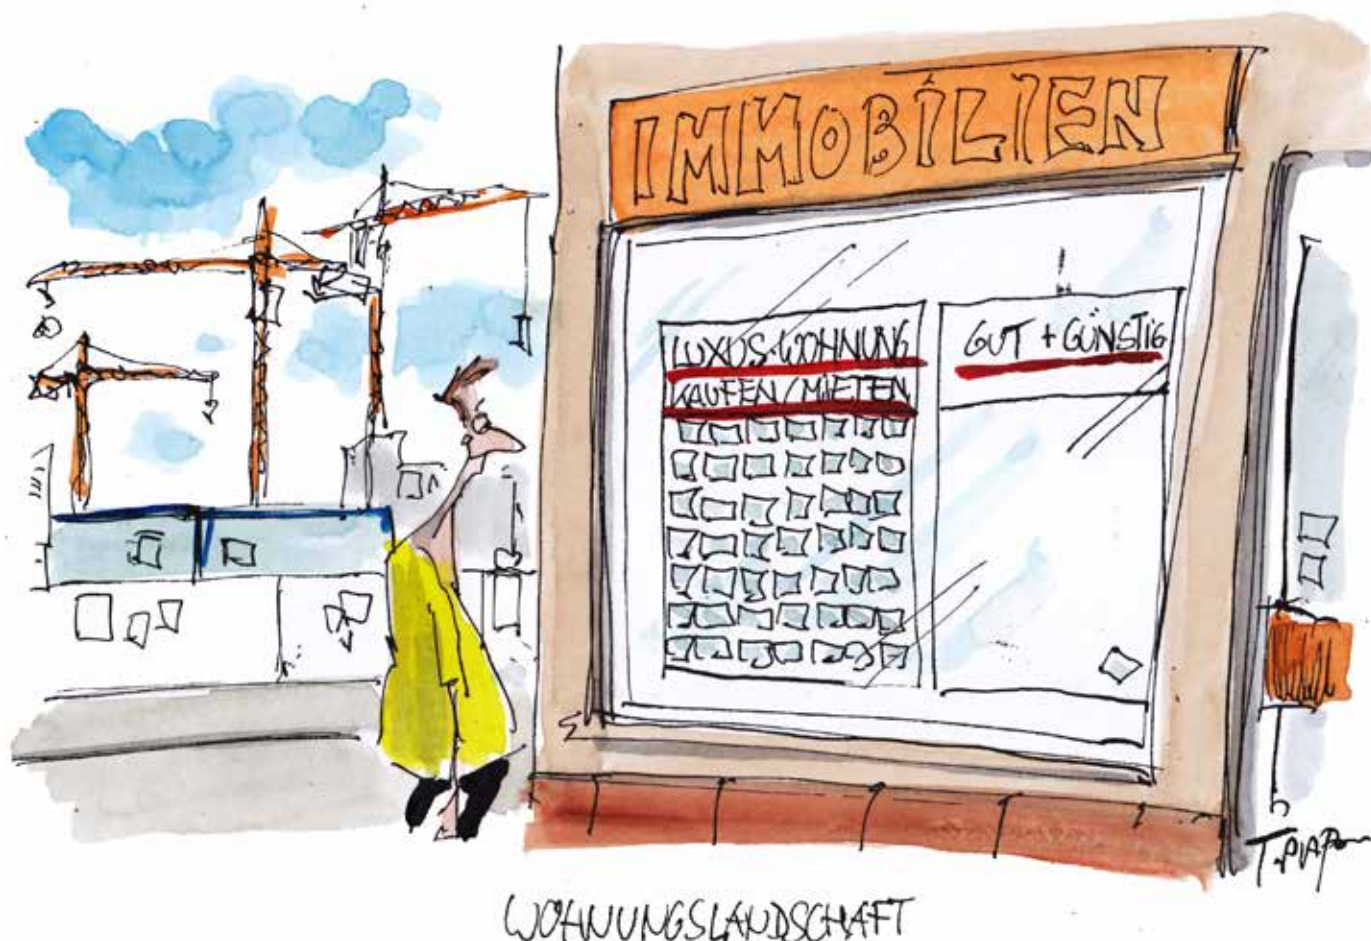 IMMOBILIEN
LUXUS-WOHNUNG
KAUFEN/MIETEN
GUT + GÜNSTIG
WOHNUNGSLANDSCHAFT